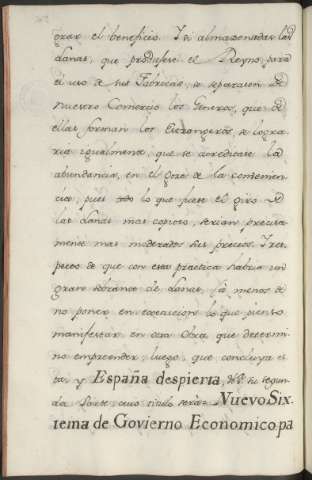 grar el beneficio. Y si almazenadas las
danas, que produjese el Reyno, para
el uso de sus Fabricas, se separasen de
nuestro Comercio los Generos, que de
ellas forman los Estrangeros, se logra-
ria igualmente, que se acreditase la
abundancia, en el goze de la convenien-
cia, pues todo lo que fuese el giro de
las danas mas copioso, serian precisa-
mente mas moderados sus precios. Y res-
pecto de que con esta practica habria un
grave sobrante de danas, (a menos de
no poner en execucion lo que pienso
manifestar en otra Obra, que determi-
no emprender, luego, que concluya es-
ta, y España despierta, su segun-
da Parte, cuio titulo será: Nuevo Sis-
tema de Govierno Economico pa